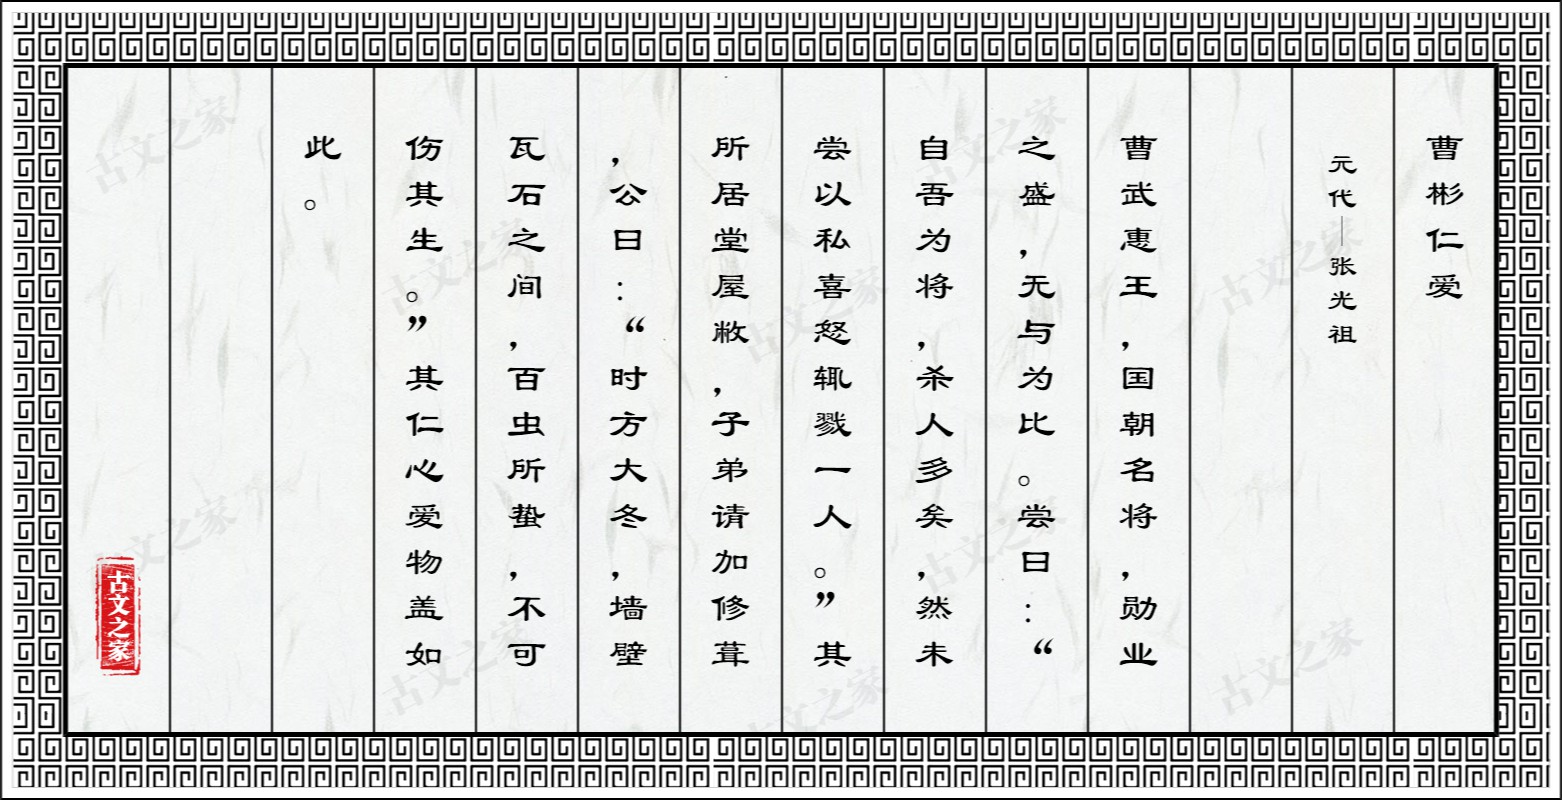 曹彬仁爱
元代—张光祖
曹武惠王，国朝名将，勋业
之盛，无与为比。尝曰：“
自吾为将，杀人多矣，然未
尝以私喜怒辄戮一人。”其
所居堂屋敝，子弟请加修葺
，公曰：“时方大冬，墙壁
瓦石之间，百虫所蛰，不可
伤其生。”其仁心爱物盖如
此。
古文之家